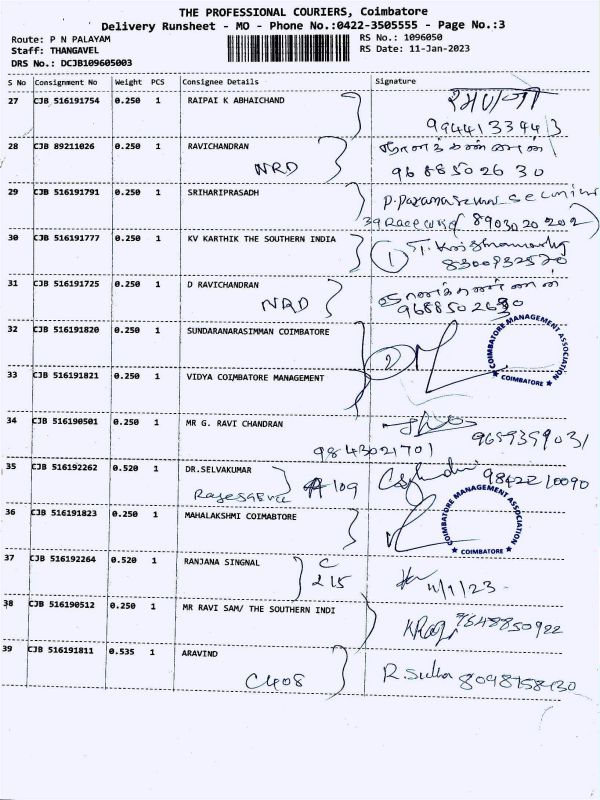 THE PROFESSIONAL COURIERS, Coimbatore
Delivery Runsheet - MO - Phone No.:0422-3505555 - Page No.:3
Route: P N PALAYAM
Staff: THANGAVEL
DRS No.: DCJB109605003
RS No.: 1096050
RS Date: 11-Jan-2023
S No Consignment No Weight PCS Consignee Details Signature
27 CJB 516191754 0.250 1 RAIPAI K ABHAICHAND
28 CJB 89211026 0.250 1 RAVICHANDRAN
NRD 96 885 02 6 30
29 CJB 516191791 0.250 1 SRIHARIPRASADH
89030 20 202
30 CJB 516191777 0.250 1 KV KARTHIK THE SOUTHERN INDIA
1
31 CJB 516191725 0.250 1 D RAVICHANDRAN
NRD 9688502630
32 CJB 516191820 0.250 1 SUNDARANARASIMMAN COIMBATORE
2
COIMBATORE MANAGEMENT ASSOCIATION
★ COIMBATORE ★
33 CJB 516191821 0.250 1 VIDYA COIMBATORE MANAGEMENT
34 CJB 516190501 0.250 1 MR G. RAVI CHANDRAN
9843021701 9659359031
35 CJB 516192262 0.520 1 DR.SELVAKUMAR
A 109 9842210090
36 CJB 516191823 0.250 1 MAHALAKSHMI COIMABTORE
COIMBATORE MANAGEMENT ASSOCIATION
★ COIMBATORE ★
37 CJB 516192264 0.520 1 RANJANA SINGNAL
C
215 11/1/23
38 CJB 516190512 0.250 1 MR RAVI SAM/ THE SOUTHERN INDI
39 CJB 516191811 0.535 1 ARAVIND
C408 R. Sudha 8098758430